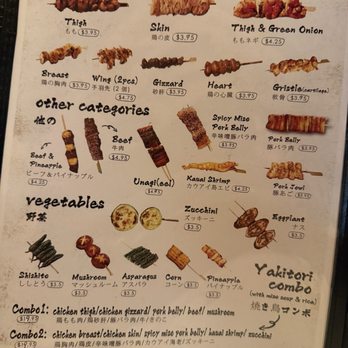 Thigh
もも $3.95
Skin
鶏の皮 $3.95
Thigh & Green Onion
ももネギ $4.25
Breast
鶏の胸肉 $3.95
Wing (2pcs)
手羽先 (2個)
$4.75
Gizzard
砂肝 $3.95
Heart
鶏の心臓 $3.95
Gristle (cartilage)
軟骨 $3.95
other categories
他の
Beef
牛肉
$4.95
Beef &
Pineapple
ビーフ&パイナップル
$4.25
Unagi (eel)
Spicy Miso
Pork Belly
辛味噌豚バラ肉
Pork Belly
豚バラ肉
Kauai Shrimp
カウアイ島エビ
Pork Jowl
豚あご
vegetables
野菜
Zucchini
ズッキーニ
Eggplant
ナス
Shishito
ししとう
Mushroom
マッシュルーム
Asparagus
アスパラ
Corn
コーン
Pineapple
パイナップル
Yakitori
combo
(with miso soup & rice)
焼き鳥コンボ
Combo1: chicken thigh/ chicken gizzard/ pork belly/ beef/ mushroom
鶏もも肉/鶏砂肝/豚バラ肉/牛/きのこ
Combo2: chicken breast/ chicken skin/ spicy miso pork belly/ kauai shrimp/ zucchini
鶏胸肉/鶏皮/辛味噌豚バラ肉/カウアイ海老/ズッキーニ